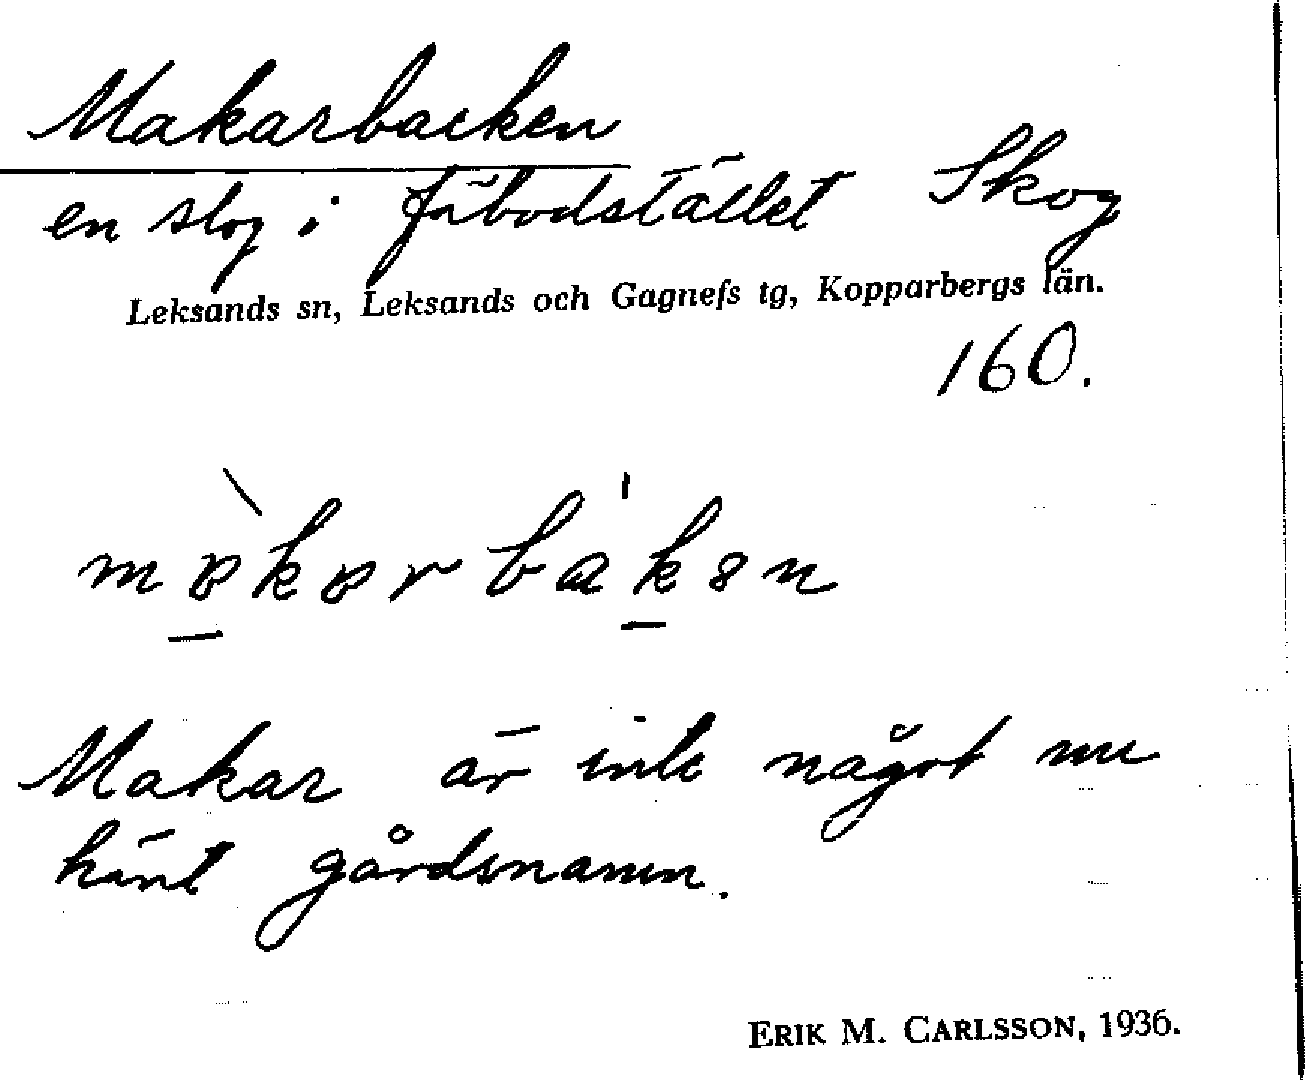 Makarbacken
en slog i fäbodstället Skog
Leksands sn, Leksands och Gagnefs tg, Kopparbergs län.
160.
Makar är inte något nu
känt gårdsnamn.
ERIK M. CARLSSON, 1936.